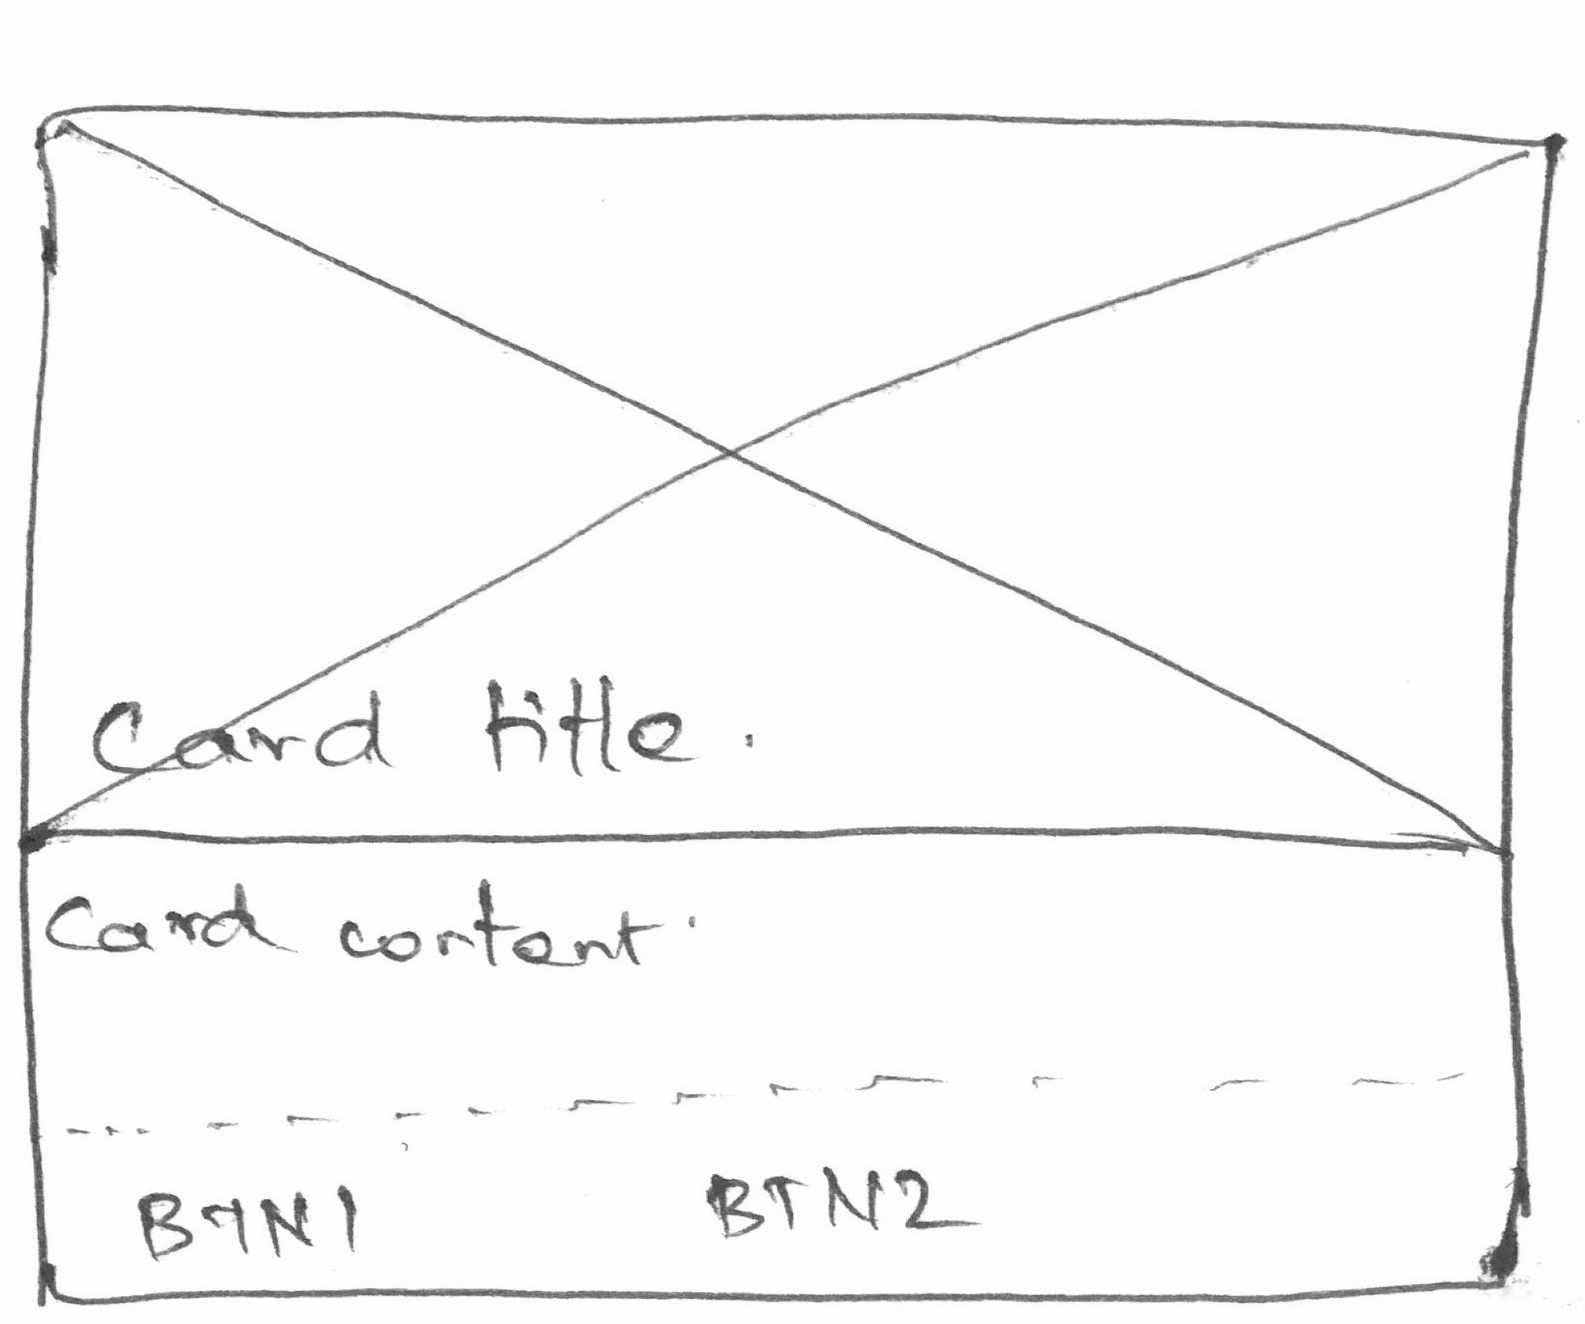 Card title.
Card content.
BTN1
BTN2